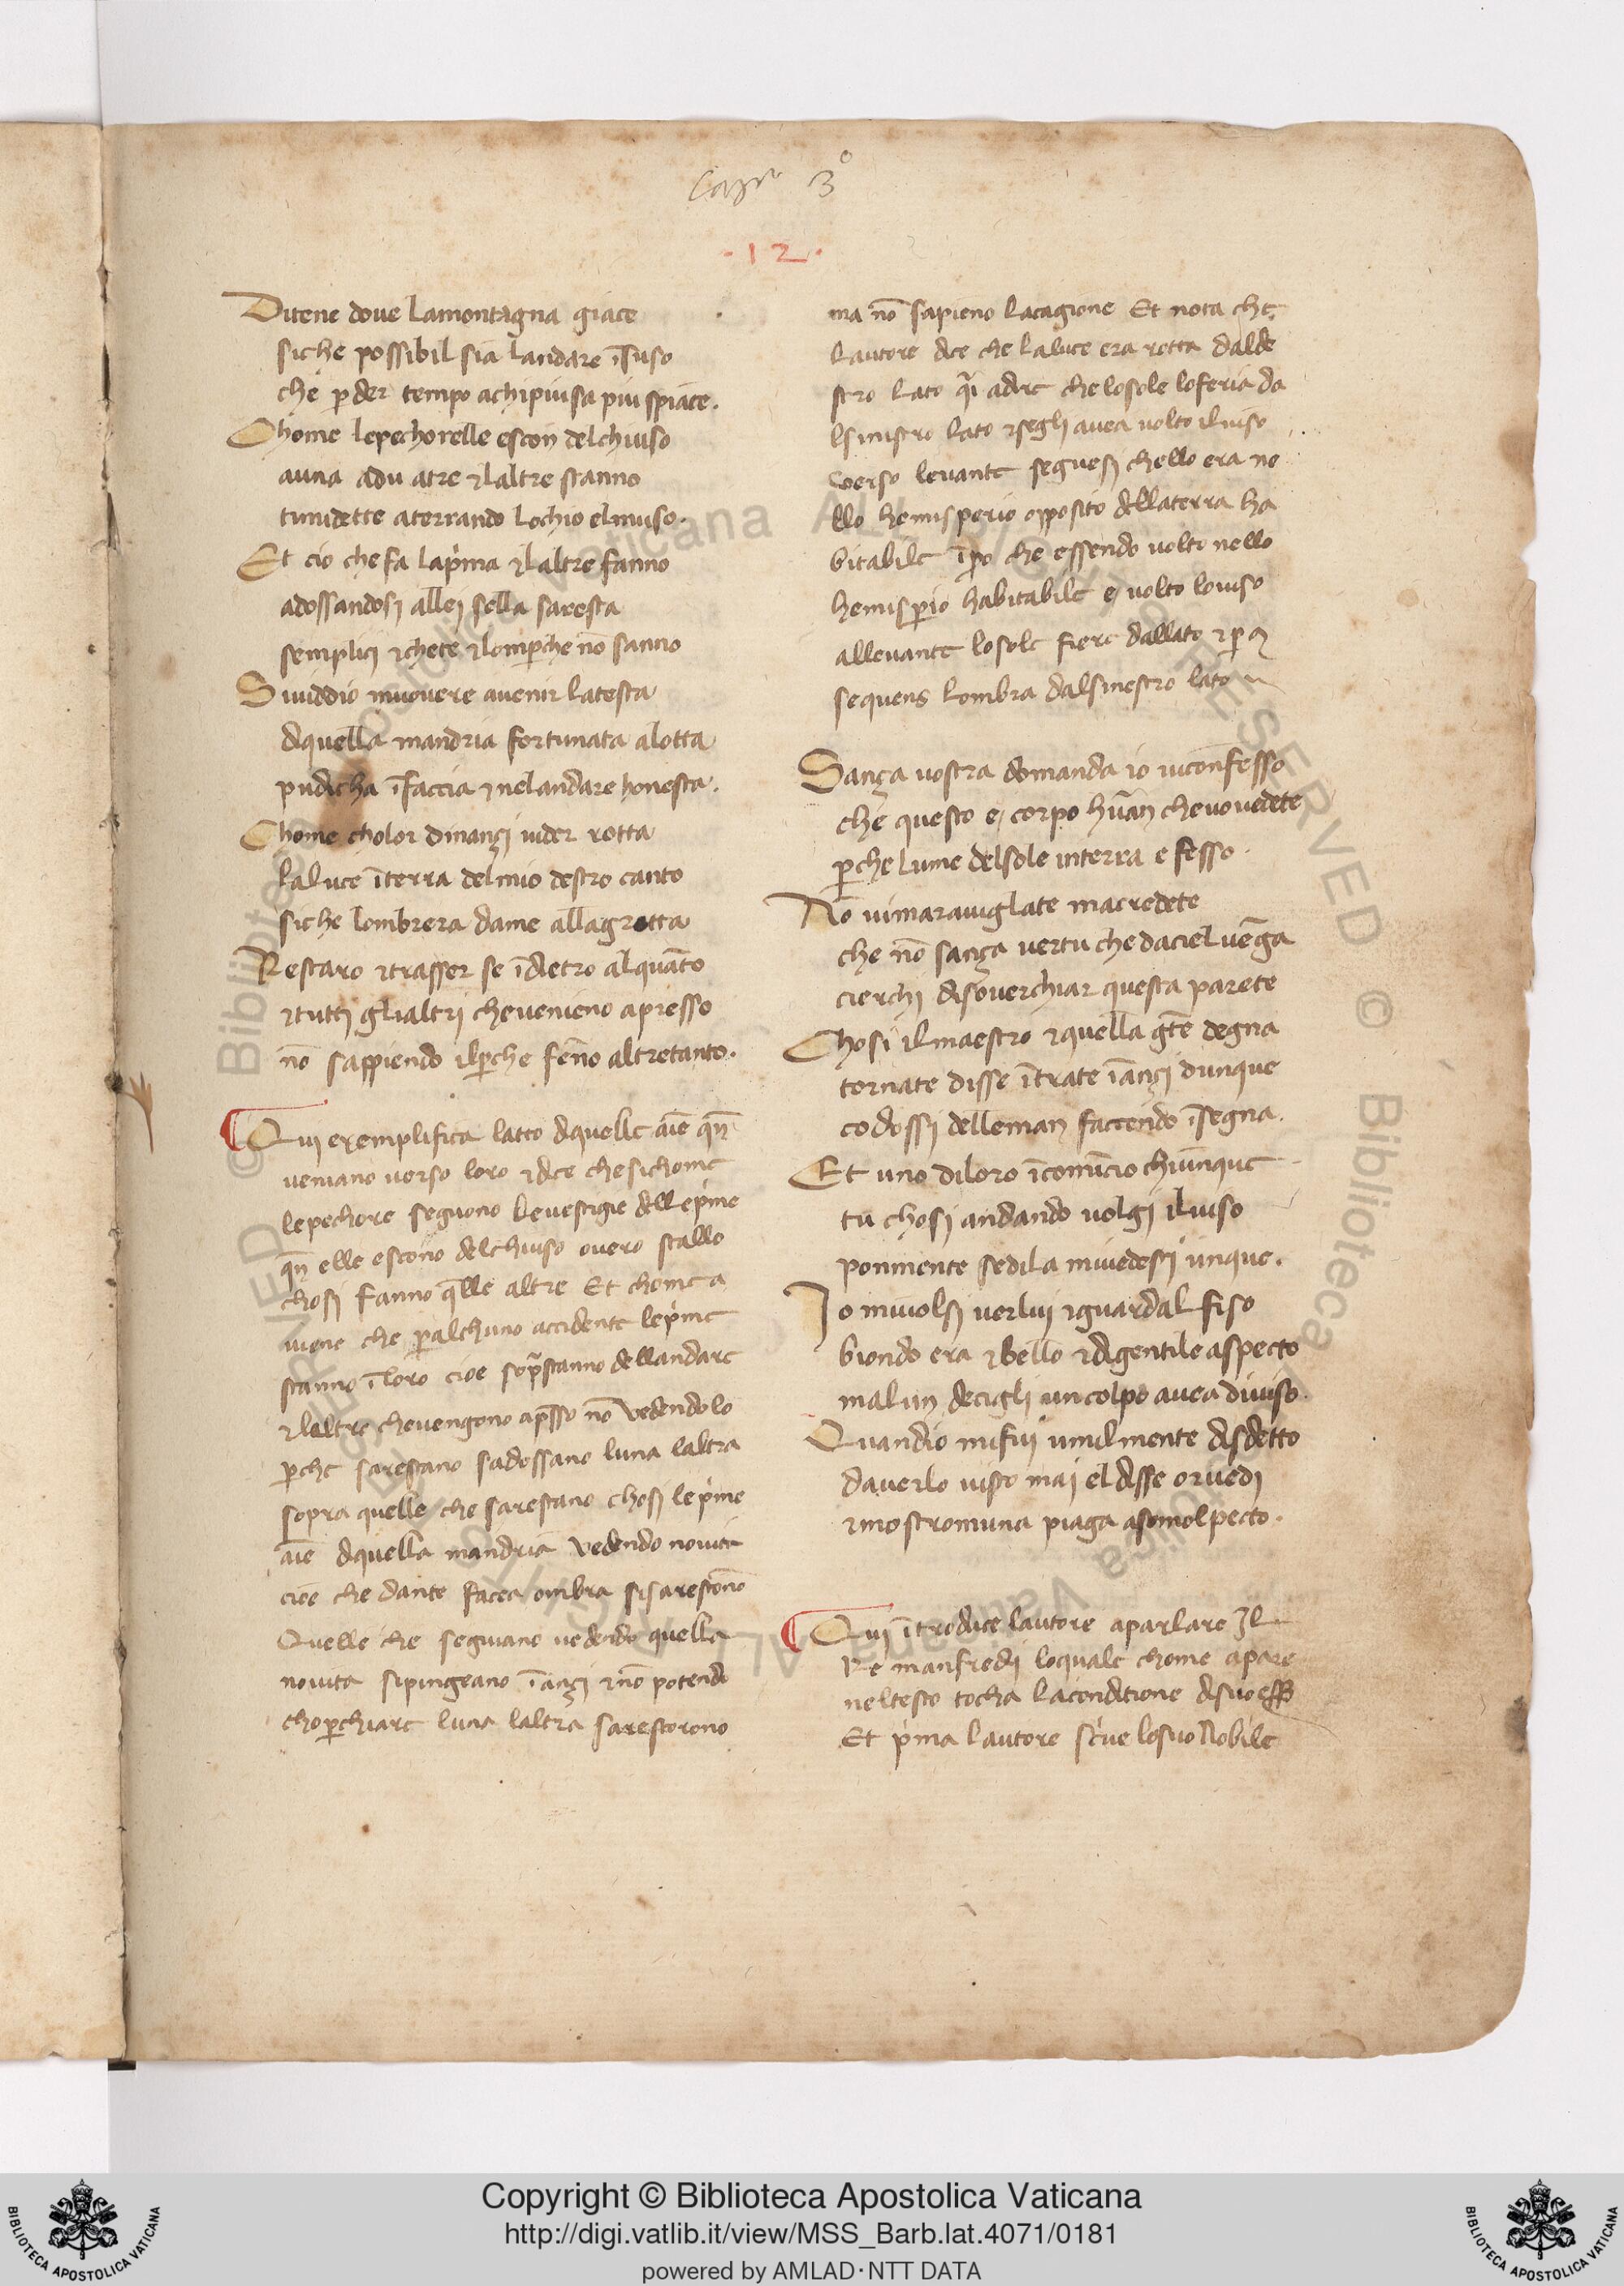 Cap° 3°
·12·
Ditene doue lamontagna giace
siche possibil sia landare īsuso
che ꝑder tempo achipiusa piu spiace.
Chome lepechorelle escon delchiuso
auna adu atre ⁊laltre stanno
timidette aterrando lochio elmuso.
Et cio chefa lapͥma ⁊laltre fanno
adossandosj allej sella saresta
semplicj ⁊chete ⁊lomꝑche nō sanno
Siuiddio muouere auenir latesta
dquella mandria fortunata alotta
pudicha ī faccia ⁊nelandare honesta.
Chome cholor dinançj uider rotta
laluce īterra delmio destro canto
siche lombrera dame allagrotta
Restaro ⁊trasser se īdietro alquāto
⁊tuttj glialtrj cheuenieno apresso
nō sappiendo ilꝑche fēno altretanto.
Quj exemplifica latto dquelle aīe qn̄
ueniano uerso loro ⁊dice chesichome
lepechore seguono leuestigie dellepͥme
qn̄ elle escono delchiuso ouero stallo
chosj fanno q̄lle altre Et chome a
uiene che ꝑalchuno accidente lepͥme
stanno ī loro cioe sopͣstanno dellandare
⁊laltre cheuengono ap̄sso nō vedendolo
ꝑche sarestano sadossano luna laltra
sopra quelle che sarestano chosj lepͥme
aīe dquella mandria vedendo nouita
cioe che dante facea ombra sisarestono
Quelle che seguiano uedendo quella
nouita sipingeano īançj ⁊nō potendo
choꝑchiare luna laltra sarestorono
ma nō sapieno lacagione Et nota che
lautore dice che laluce era rotta dalde
stro lato qͣi adire che losole loferia da
lsinistro lato ⁊segli auea uolto iluiso
verso leuante seguesj chello era ne
llo hemisperio opposito dellaterra ha
bitabile īꝑo che essendo uolto nello
hemisꝑio habitabile e uolto louiso
alleuante losole fiere dallato ⁊ꝑ
sequens lombra dalsinestro lato
Sança uostra domanda io uiconfesso
che questo e corpo hūan cheuouedete
ꝑche lume delsole interra e fesso.
Nō uimarauiglate macredete
che nō sança uertu chedaciel uēga
cierchi disouerchiar questa parete
Chosi ilmaestro ⁊quella gēte degna
tornate disse ītrate īançj dunque
codossj delleman faccendo īsegna.
Et uno diloro īcomīcio chiunque
tu chosj andando uolgj iluiso
ponmente sedila miuedestj unque.
Io miuolsj uerluj ⁊guardal fiso
biondo era ⁊bello ⁊digentile aspecto
malun decigli uncolpo auea diuiso.
Quandio mifuj umilmente disdetto
dauerlo uisto maj el disse oruedj
⁊mostromuna piaga asomolpecto.
Quj ītroduce lautore aparlare Il
Re manfredj loquale chome apare
neltesto tocha laconditione disuo
Et pͥma lautore scͥue losuo Nobile
Copyright © Biblioteca Apostolica Vaticana
http://digi.vatlib.it/view/MSS_Barb.lat.4071/0181
powered by AMLAD·NTT DATA